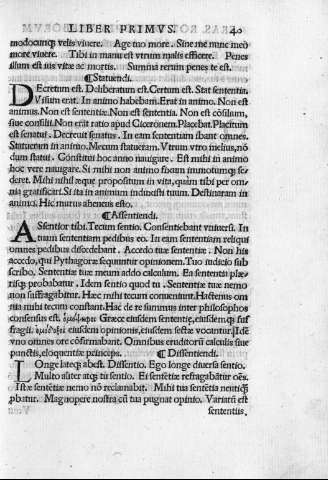 LIBER PRIMVS. 40
modocunq; velis viuere. Age tuo more. Sine me nunc meo
more viuere. Tibi in manu est vtrum malis efficere. Penes
illum est ius vitæ ac mortis. Summa rerum penes te est.
¶Statuendi.
DEcretum est. Deliberatum est. Certum est. Stat sententia.
Visum erat. In animo habebam. Erat in animo. Non est
animus. Non est sententiæ. Non est sententia. Non est cõsilium,
siue consilii. Non erat ratio apud Ciceronem. Placebat. Placitum
est senatui. Decreuit senatus. In eam sententiam ibant omnes.
Statueram in animo. Mecum statueram. Vtrum vtro melius, nõ
dum statui. Constitui hoc anno nauigare. Est mihi in animo
hoc vere nauigare. Si mihi non animo fixum immotumq; se
deret. Mihi nihil æque propositum in vita, quàm tibi per om
nia gratificari. Si ita in animum induxisti tuum. Destinaram in
animo. Hic murus aheneus esto.
¶Assentiendi.
ASsentior tibi. Tecum sentio. Consentiebant vniuersi. In
tuam sententiam pedibus eo. In eam sententiam reliqui
omnes pedibus discedebant. Accedo tuæ sententiæ. Non his
accedo, qui Pythagoræ sequuntur opinionem. Tuo iudicio sub
scribo. Sententiæ tuæ meum addo calculum. Ea sententia plæ-
risq; probabatur. Idem sentio quod tu. Sententiæ tuæ nemo
non suffragabitur. Hæc mihi tecum conueniunt. Hactenus om
nia mihi tecum constant. Hac de re summus inter philosophos
consensus est. Græce eiusdem sententiæ, eiusdem q; suf
fragii. eiusdem opinionis, eiusdem sectæ vocantur. Idẽ
vno omnes ore cõfirmabant. Omnibus eruditorũ calculis siue
punctis, eloquentiæ princeps. ¶Dissentiendi.
LOnge lateq; abest. Dissentio. Ego longe diuersa sentio.
Multo aliter atq; tu sentio. Ei sentẽtiæ refragãbãtur oẽs.
Istæ sentẽtiæ nemo nõ reclamabit. Mihi tua sentẽtia neutiq̃
ꝓbatur. Magnopere nostra cũ tua pugnat opinio. Variatũ est
sententiis,